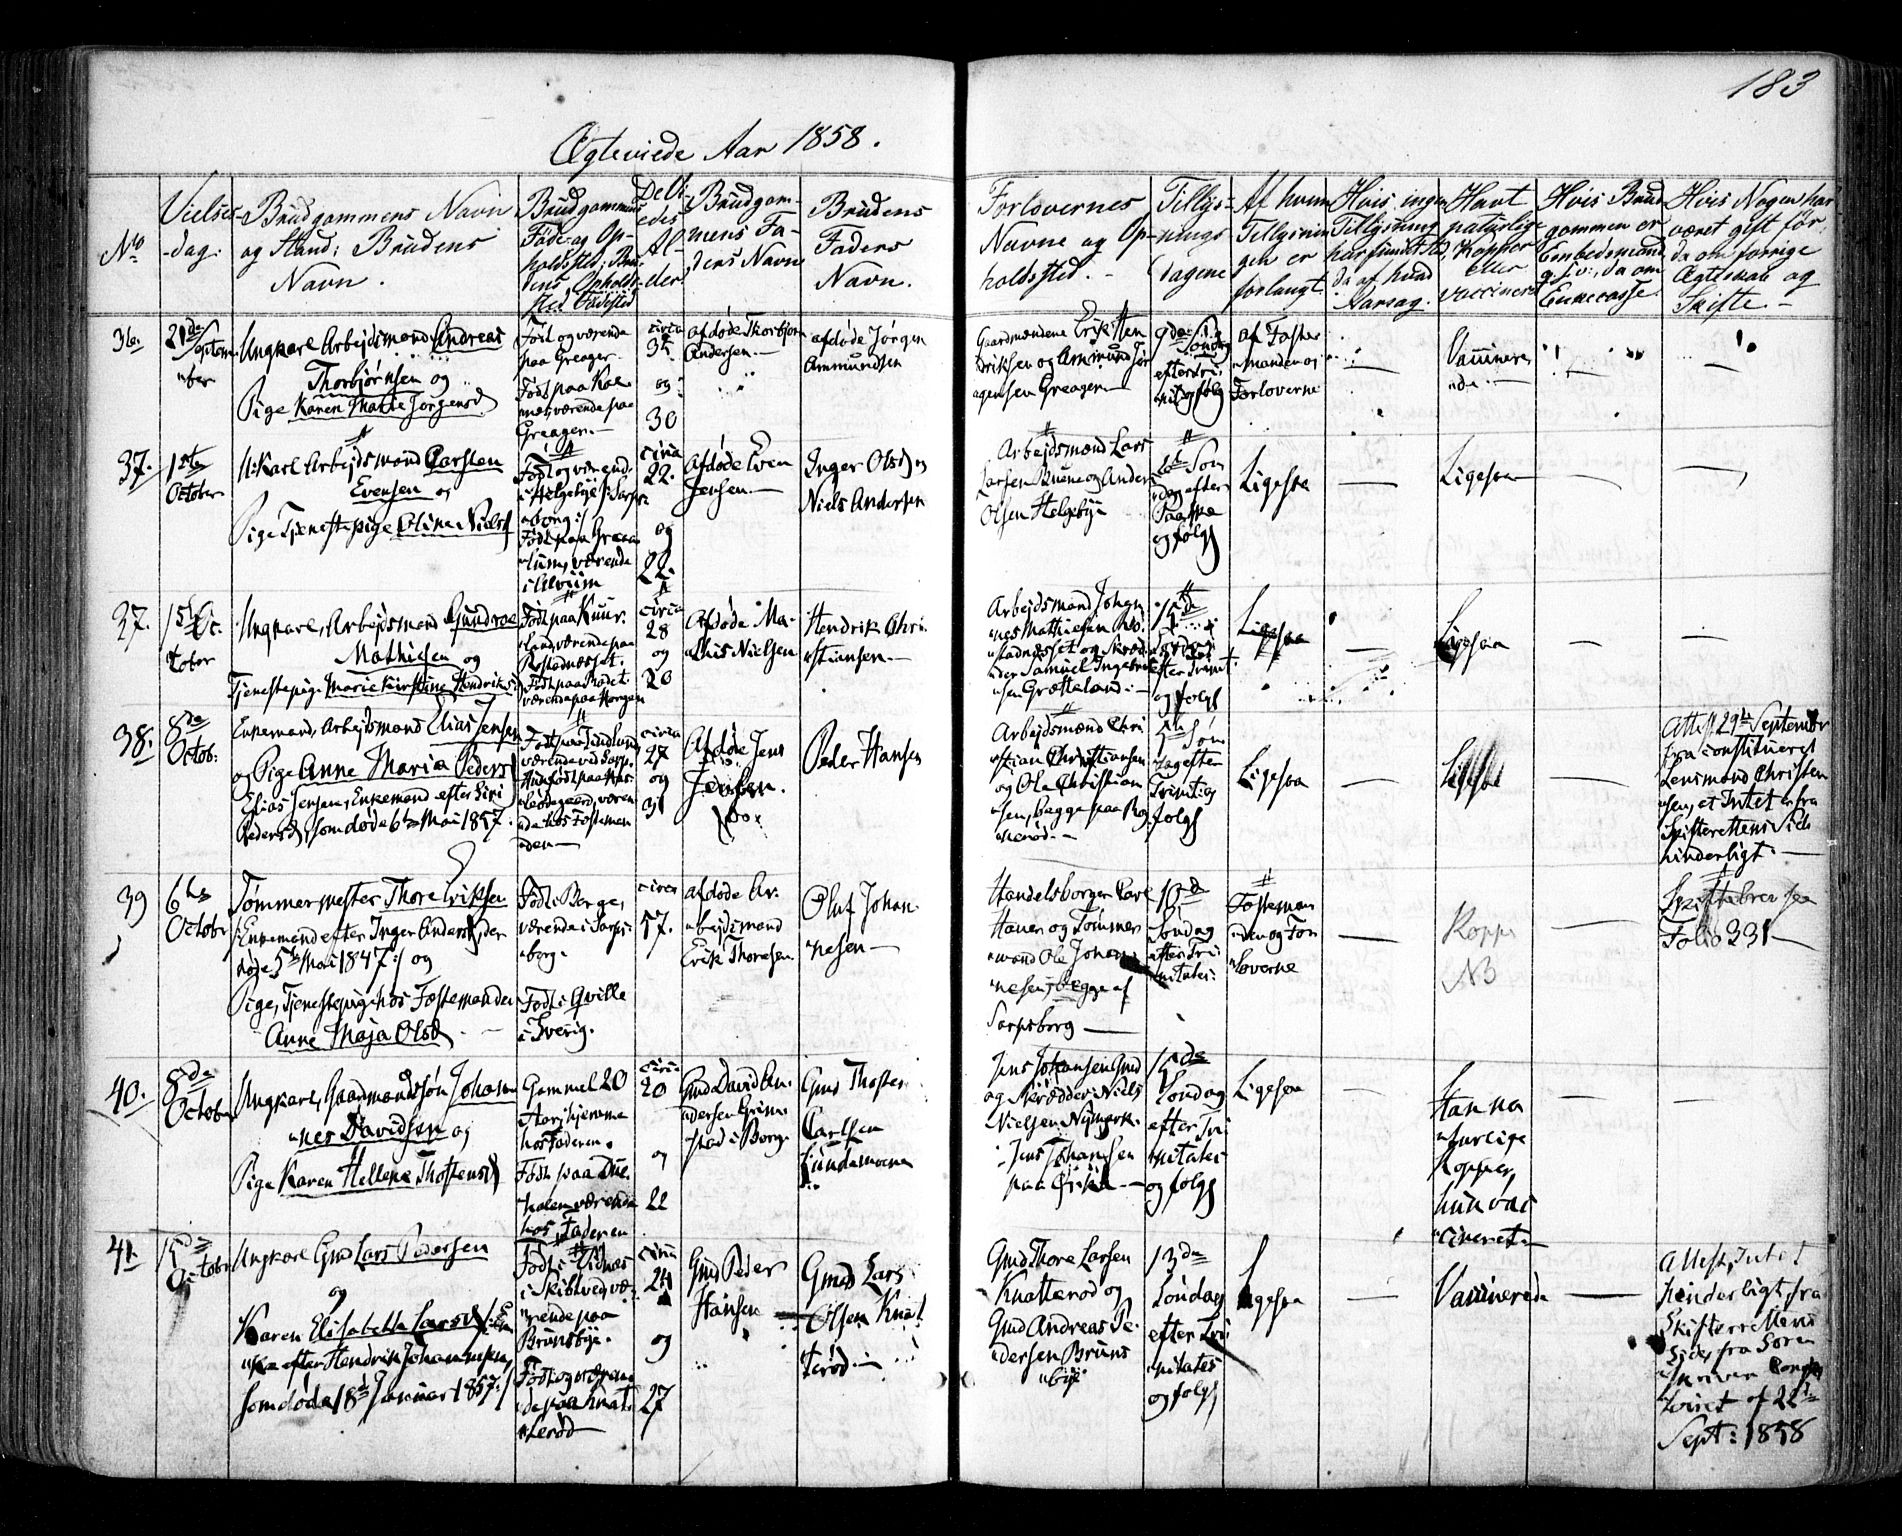 183
Ægteviede Aar 1858.
No
Vielses
-dag:
Brudgommens Navn
og Stand; Brudens
Navn.
Brudgommens
Føde- og Op-
holdssted; Bru-
dens Opholds-
sted, Fødested
De Vi-
edes
Al-
der
Brudgom-
mens Fa-
ders Navn
Brudens
Faders
Navn.
Forlovernes
Navne og Op-
holdssted.
Tillys-
nings
dagene
Af hvem
Tillysnin
gen er
forlangt
Hvis ingen
Tillysning
har fundet Sted
da af hvad
Aarsag.
Havt
naturlige
Kopper
eller
vaccinered
Hvis Brud
gommen er
Embedsmand
da om
Enkecasse
Hvis Nogen har
været gift før,
da om forrige
Ægteskab og
Skifte.
36.
21de
Septem
ber
Ungkarl Arbeidsmand Andreas
Thorbjørnsen og
Pige Karen Marie Jørgensd
Født og værende
paa Greager
Født paa
værende paa
Greager
circa
og
30
afdøde Thorbjørn
Andersen
afdøde Jørgen
Ammundsen
Gaardmændene Erik Hen
driksen og Ammund Jør
gensen Greager
Søndag
efter Tri
nit og følg
af Fæste
Manden og
Forloverne
Vaccinere
de
37.
1ste
October
Arbeidsmand Carsten
Evensen og
Pige Tjenestepige Oline Nielsd
Født og værend
i Helgebye i Sarps
borg
Født paa
lum, værende
i
circa
22.
og
22.
Afdøde Even
Jensen
Inger Olsd og
Niels Andersen
Arbeidsmænd Lars
Larsen Buene og Anders
Olsen Helgebye
Søn
dag efter
Paaske
og følg
Ligesaa
Ligesaa
37.
1ste Oc-
tober
Ungkarl, Arbeidsmand Gundroe
Mathisen og
Tjenestepige Marie Kirstine Hendriksd
Født paa
land værende paa
Født paa
værende paa
circa
28
og
20
Afdøde Ma-
this Nielsen
Hendrik Chri
stiansen
Arbeidsmand Johan
nes Mathiesen
og Skræd
der Samuel Ingebret
sen Grætteland
15de
Søndag
efter Trinit
og følg
Ligesaa
Ligesaa
38.
8de
Octob:
Enkemand, Arbeidsmand Elias Jensen
og Pige Anne Maria Pedersd
Elias Jensen, Enkemand efter Siri
Pedersd, som døde 6te Mai 1857.
værende ved Sarp.
Hun født paa
gaard, væren
de hos Fæsteman
den
circa
27
og
31
Afdøde Jens
Jensen.
Peder Hansen
Arbeidsmænd Chri
stian Christiansen
og Ole Christian
sen, begge paa
Søn
dag efter
Trinit og
følg
Ligesaa
Ligesaa
Attest 29de September
fra constitueret
Lensmand Christen
sen, at Intet er fra
Skifterettens Side
hinderligt.
39
6te
October
Tømmermester Thore Eriksen
Enkemand efter Inger Andersd, der
døde 5te Mai 1847 og
Pige, Tjenestepige hos Fæstemanden
Anne Maja Olsd
Født i Berge,
værende i Sarps
borg.
Født i Qville
i Sverig.
circa
57.
afdøde Ar
beidsmand
Erik Thoresen
Oluf Johan
nesen
Handelsborger Carl
Hauer og Tømmer
mand Ole Johan
nesen, begge af
Sarpsborg
Søndag
efter Tri
nitatis
Fæsteman
den og For
loverne
Kopper
NB
Skiftebrev see
Folio 231
40.
8de
October
Ungkarl, Gaardmandssøn Johan
nes Davidsen og
Pige Karen Hellene Thostensd
Gammel 20
Aar, hjemme
hos Faderen.
Født paa Due
holen værende
hos Faderen
circa
20
og
22
Gmd David An
dersen Grim
stad i Borge
Gmd Thosten
Carlsen
Lundemoene
Jens Johansen Gmd
og Skrædder Niels
Nielsen Nypark.
Jens Johansen
paa
Søndag
efter Tri
nitatis
og følg
Ligesaa
Han na
turlige
Kopper,
hun vac
cineret
41.
October
Ungkarl Gmd Lars Pedersen
og
Karen Elisabetha Larsd, En
ke efter Hendrik Johannesen,
som døde 18de Januar 1857.
Født i Vidnæs
i Skibtved væ
rende paa
Brunsbye.
Født og væren
de paa Knat
terød
circa
24
og
27
Gmd Peder
Hansen
Gmd Lars
Olsen Knat
terød
Gmd Thore Larsen
Knatterød og
Gmd Andreas Pe
dersen Bruns
bye
13de
Søndag
efter Tri
nitatis
og følg
Ligesaa
Vaccinerede
Attest, Intet
hinderligt fra
Skifterettens
Side, fra Soren
skriver
toiret af 22de
Sept: 1858